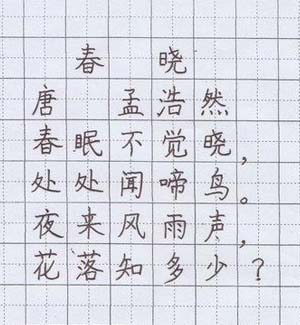 春 晓
唐 孟浩然
春眠不觉晓，
处处闻啼鸟。
夜来风雨声，
花落知多少？